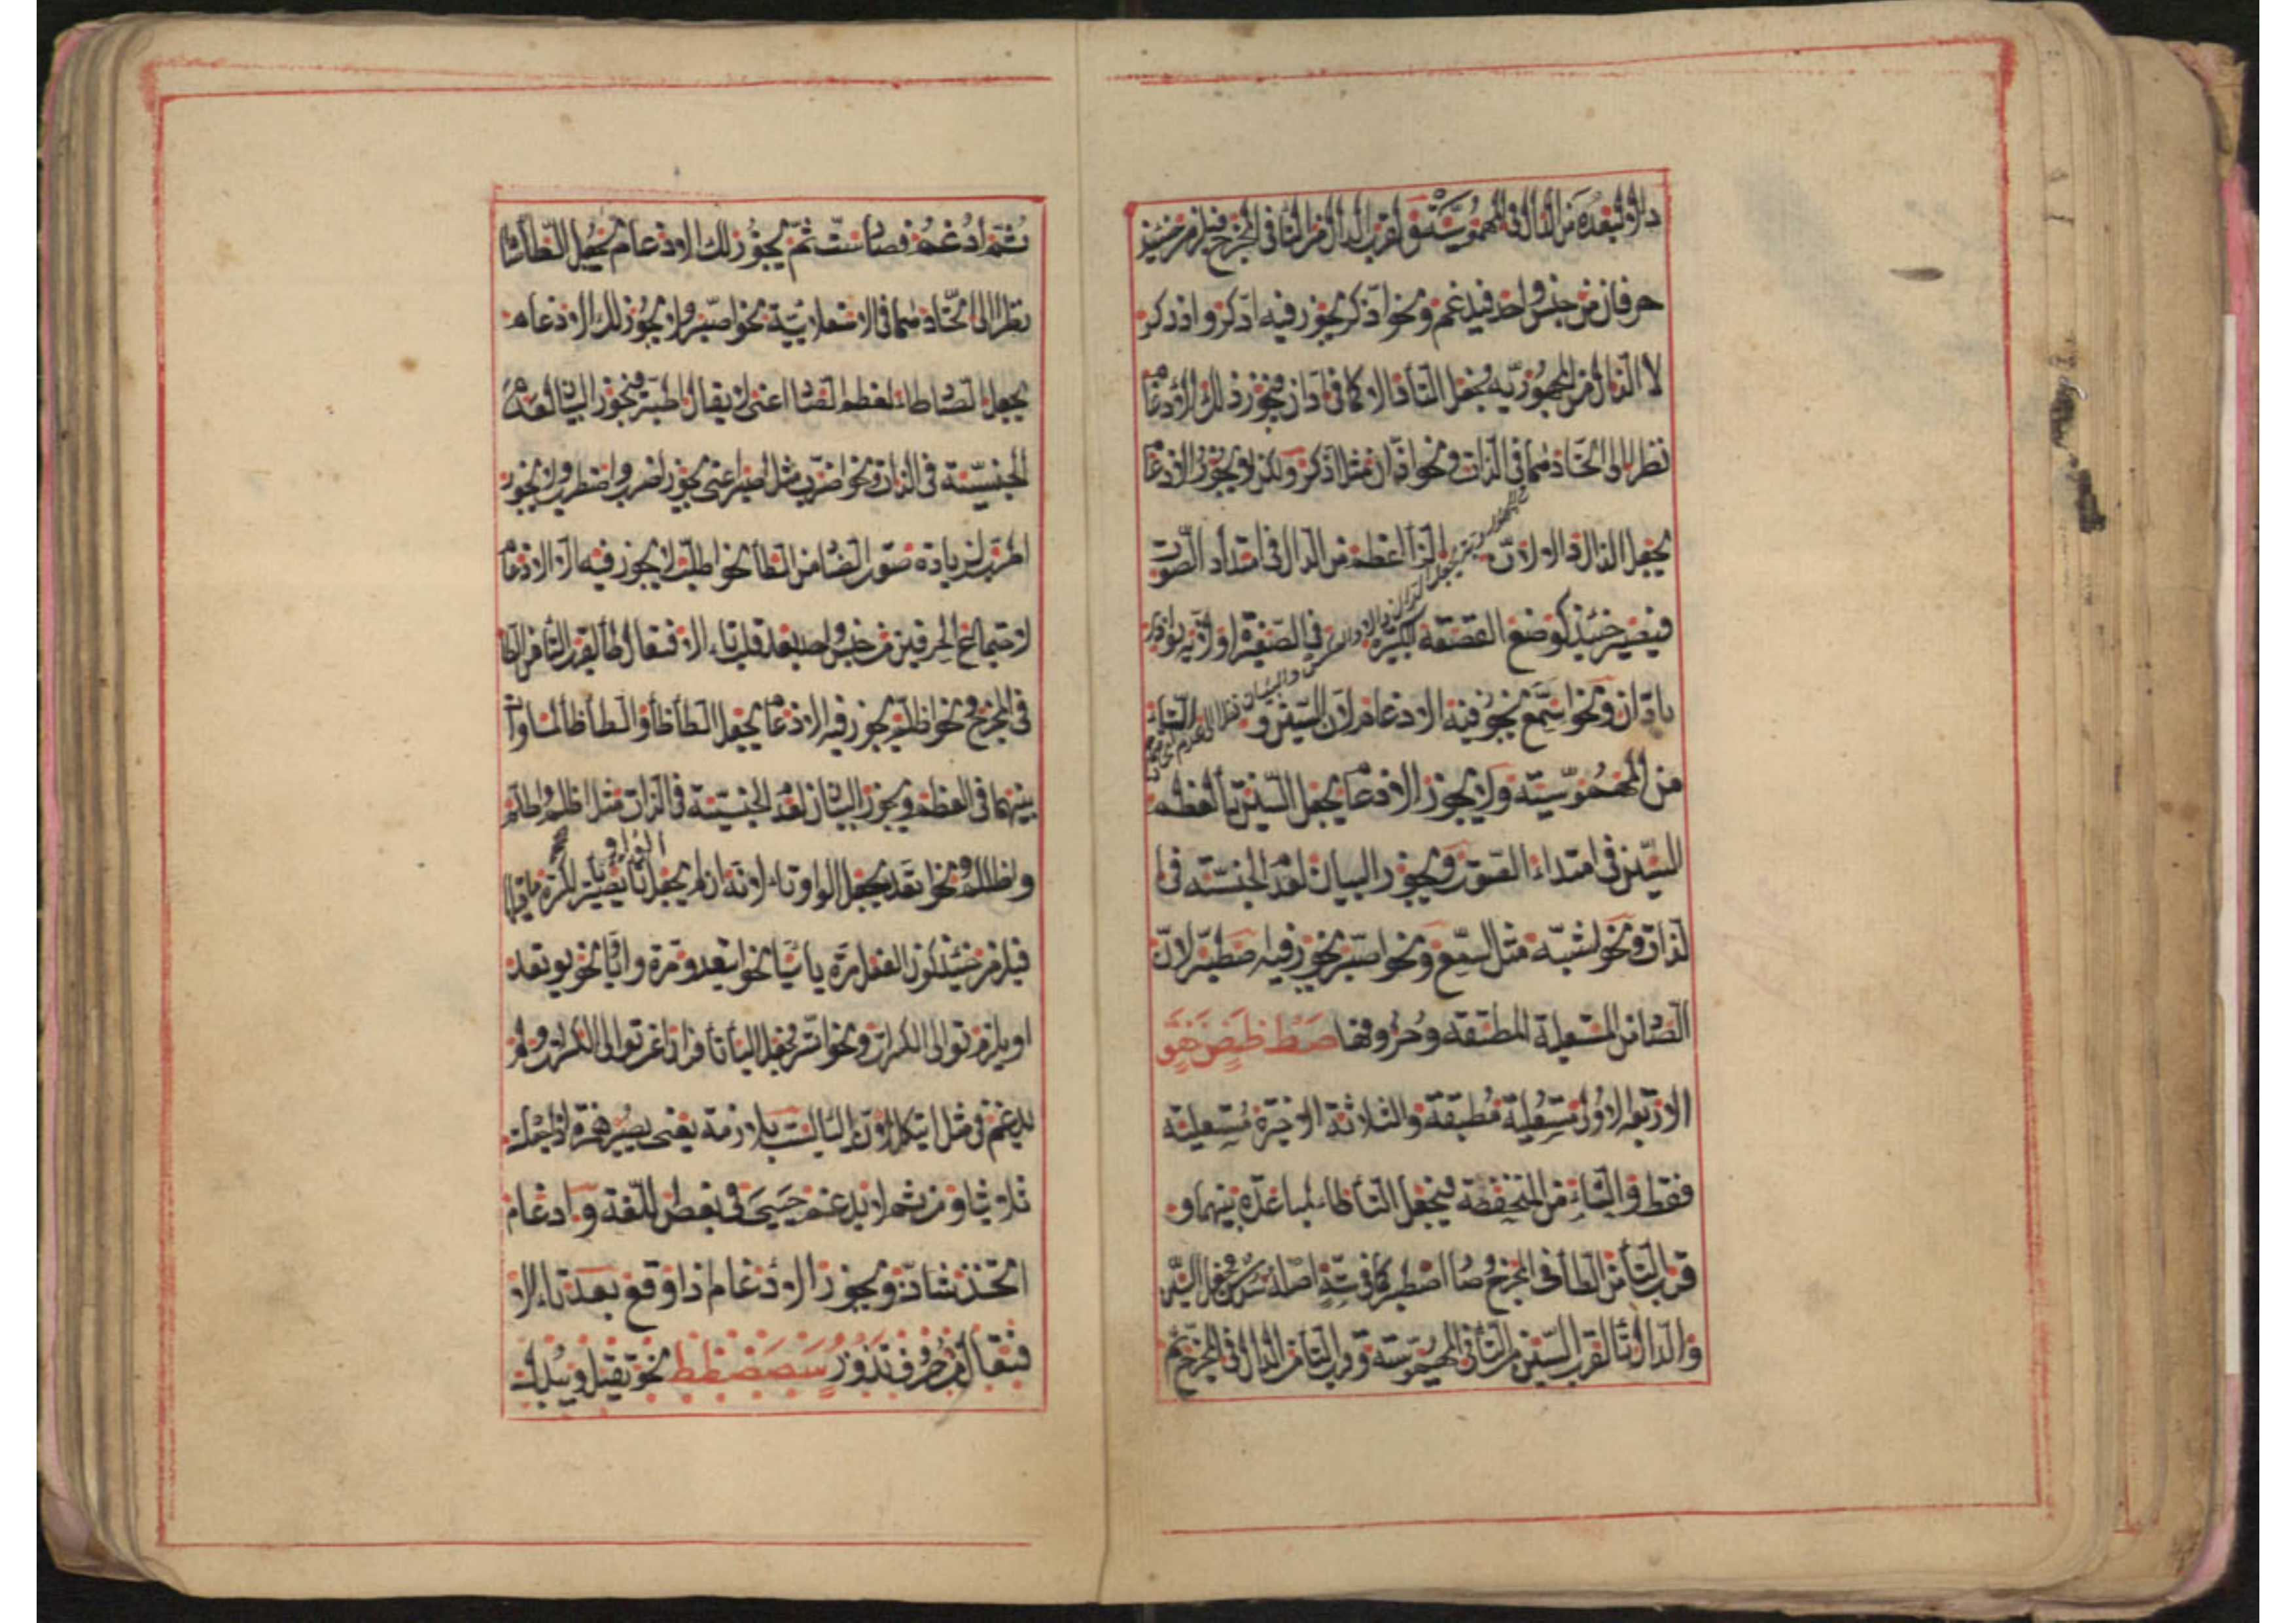 دالا لبعده من الدال في المهموسية لقرب الدال من التا في المخرج فيلزم حينئذ
حرفان من جنس واحد فيدغم ونحو اذكر يجوز فيه ادكر واذدكر
لان الذال من المجهورية فجعل التا دالا كما في ادان فيجوز ذلك الادغام
نظرا الى اتحادهما في الذات ونحو اذان مثل اذكر ولكن لا يجوز الادغام
يجعل الذال دالا لان الزا اعظم من الدال في امتداد الصوت
فيصير حينئذ كوضع القصعة الكبيرة في الصغيرة او لانه يوازي
بادان ونحو اسمع يجوز فيه الادغام لان السين و التاء
من المهموسية ولا يجوز الادغام يجعل السين تا لعظم
السين في امتداد الصوت ويجوز البيان لعدم الجنسية في
الذات ونحو اشبه مثل اسمع ونحو اصبر يجوز فيه اصطبر لان
الصاد من المستعلية المطبقة وحروفها صط ظض خغق
الاربعة الاولى مستعلية مطبقة والثلاثة الاخيرة مستعلية
فقط والتاء من المنخفضة فيجعل التا طاء لمباعدة بينهما و
قرب التا من الطا في المخرج فصار اصطبر كما في ستة اصله سدس فجعل السين
والدال تا لقرب السين من التا في المهموسية وقرب التا من الدال في المخرج ثم
ثم ادغم فصار ست ثم يجوز لك الادغام يجعل الطا صادا
نظرا الى اتحادهما في الاستعلائية نحو اصبر ولا يجوز لك الادغام
يجعل الصاد طاء لعظم الصاد اعنى لا يقال اطبر ويجوز البيان لعدم
الجنسية في الذات ونحو اضرب مثل اصبر اعنى يجوز اضرب واضطرب ولا يجوز
اطرب لزيادة صوت الضاد من الطا نحو اطلب لا يجوز فيه الا الادغام
لاجتماع الحرفين من جنس واحد بعد قلب تاء الافتعال طا لقرب التا من الطا
في المخرج ونحو اظلم يجوز فيه الادغام يجعل الطا ظا والظا طا لمساوات
بينهما في العظم ويجوز البيان لعدم الجنسية في الذات مثل اظلم واطلم
واظطلم ونحو اتعد يجعل الواو تاء لانه ان لم يجعل تا يصير الواو يا لكسرة ما قبلها
فيلزم حينئذ كون الفعل مرة يائيا نحو ايتعد ومرة واويا نحو يوتعد
او يلزم توالى الكسرات ونحو اتسر يجعل اليا تا فرارا عن توالى الكسرات ولم
يدغم في مثل ايتكل لان اليا ليست بلازمة يعنى يصير همزة اذا جعلت
ثلاثيا ومن ثم لا يدغم حيي في بعض اللغة وادغام
اتخذ شاذ ويجوز الادغام اذا وقع بعد تاء الا
فتعال من حروف تدذز سصضطظ نحو يقتل ويبدل